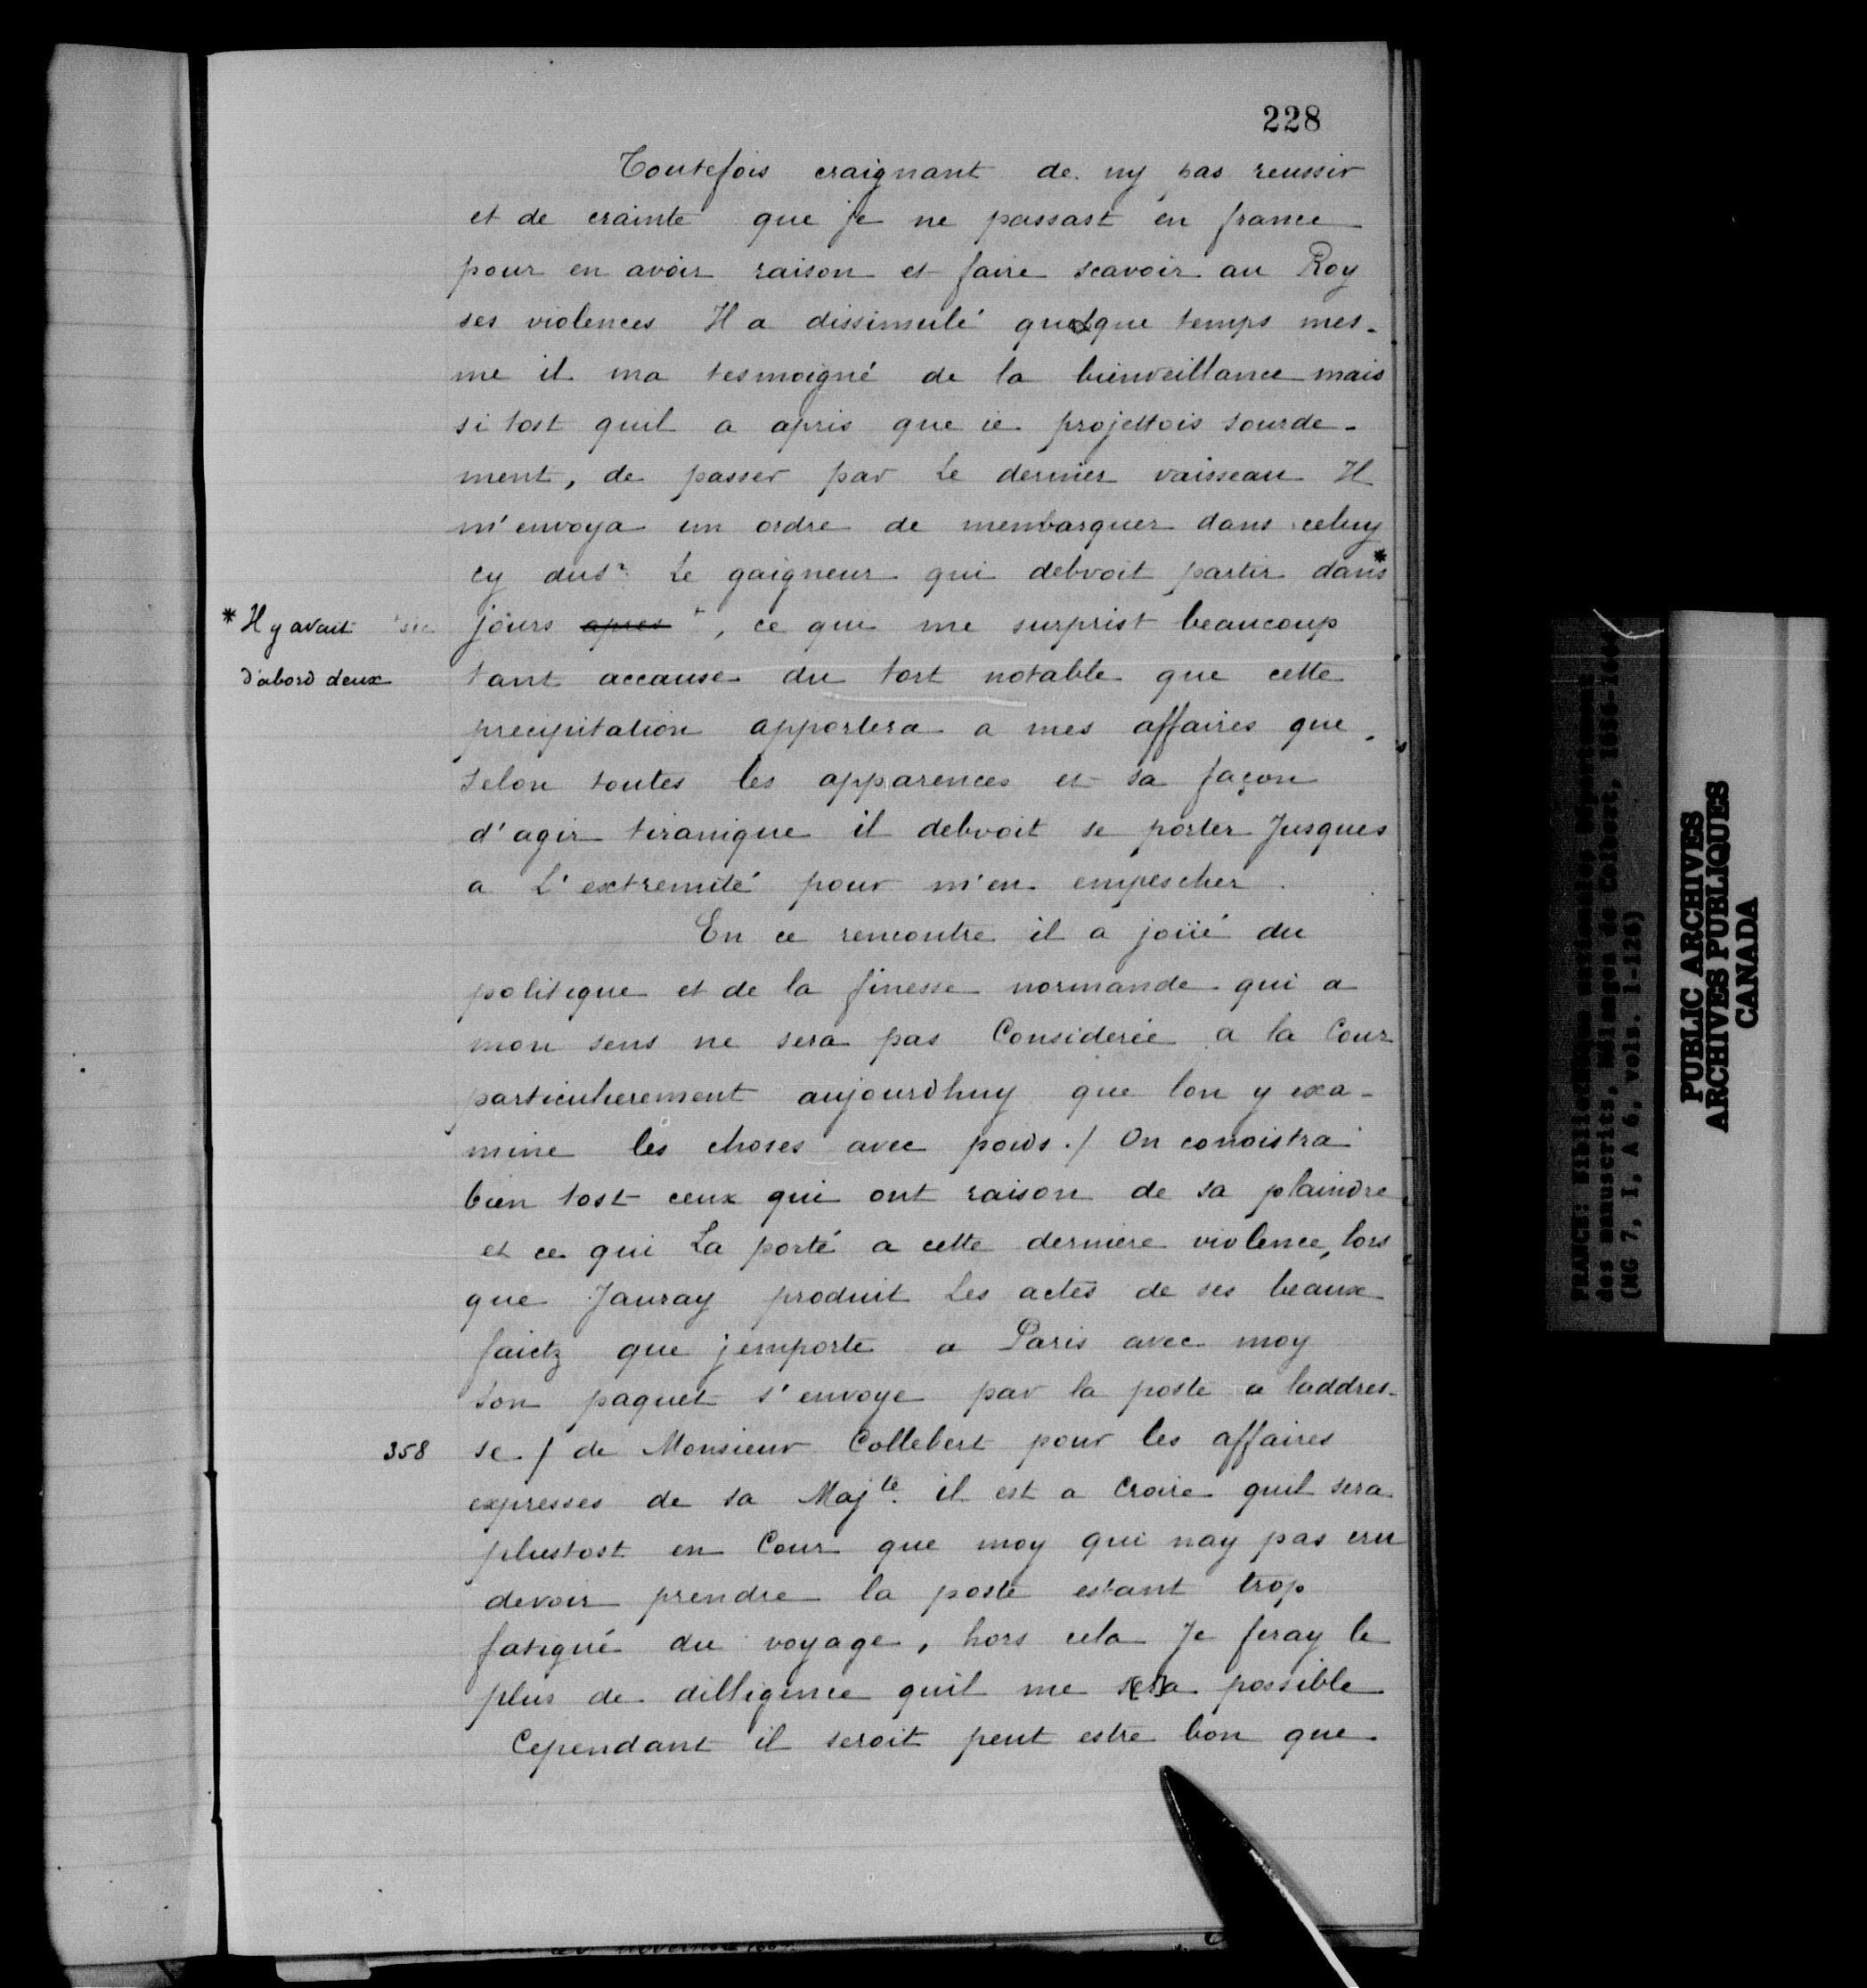 228
Toutefois craignant de ny pas reussir
et de crainte que je ne passast en france
pour en avoir raison et faire scavoir au Roy
ses violences Il a dissimulé quelque temps mes-
me il ma tesmoigné de la bienveillance mais
si tost quil a apris que ie projettois sourde-
ment, de passer par Le dernier vaisseau Il
m'envoya un ordre de membarquer dans celuy
cy dusr Le gaigneur qui debvoit partir dans*
* Il y avait sic jours apres , ce qui me surprist beaucoup
d'abord deux tant accause du tort notable que cette
precipitation apportera a mes affaires que
selon toutes les apparences et sa façon
d'agir tiranique il debvoit se porter Jusques
a L'extremité pour m'en empescher.
En ce rencontre il a joüé du
politique et de la finesse normande qui a
mon sens ne sera pas Considerée a la Cour
particulierement aujourdhuy que lon y exa-
mine les choses avec poids./ On connoistra
bien tost ceux qui ont raison de sa plaindre
et ce qui La porté a cette derniere violence, lors
que Jauray produit Les actes de ses beaux
faictz que jemporte a Paris avec moy
son paquet s'envoye par la poste a laddres-
358 se / de Monsieur Collebert pour les affaires
expresses de sa Majte. il est a Croire quil sera
plustost en Cour que moy qui nay pas cru
devoir prendre la poste estant trop
fatigué du voyage, hors cela Je feray le
plus de dilligence quil me sera possible
Cependant il seroit peut estre bon que
FRANCE: Bibliothèque nationale, Département
des manuscrits, Mélanges de Colbert,
(MG 7, I, A 6, vols. 1-126)
PUBLIC ARCHIVES
ARCHIVES PUBLIQUES
CANADA